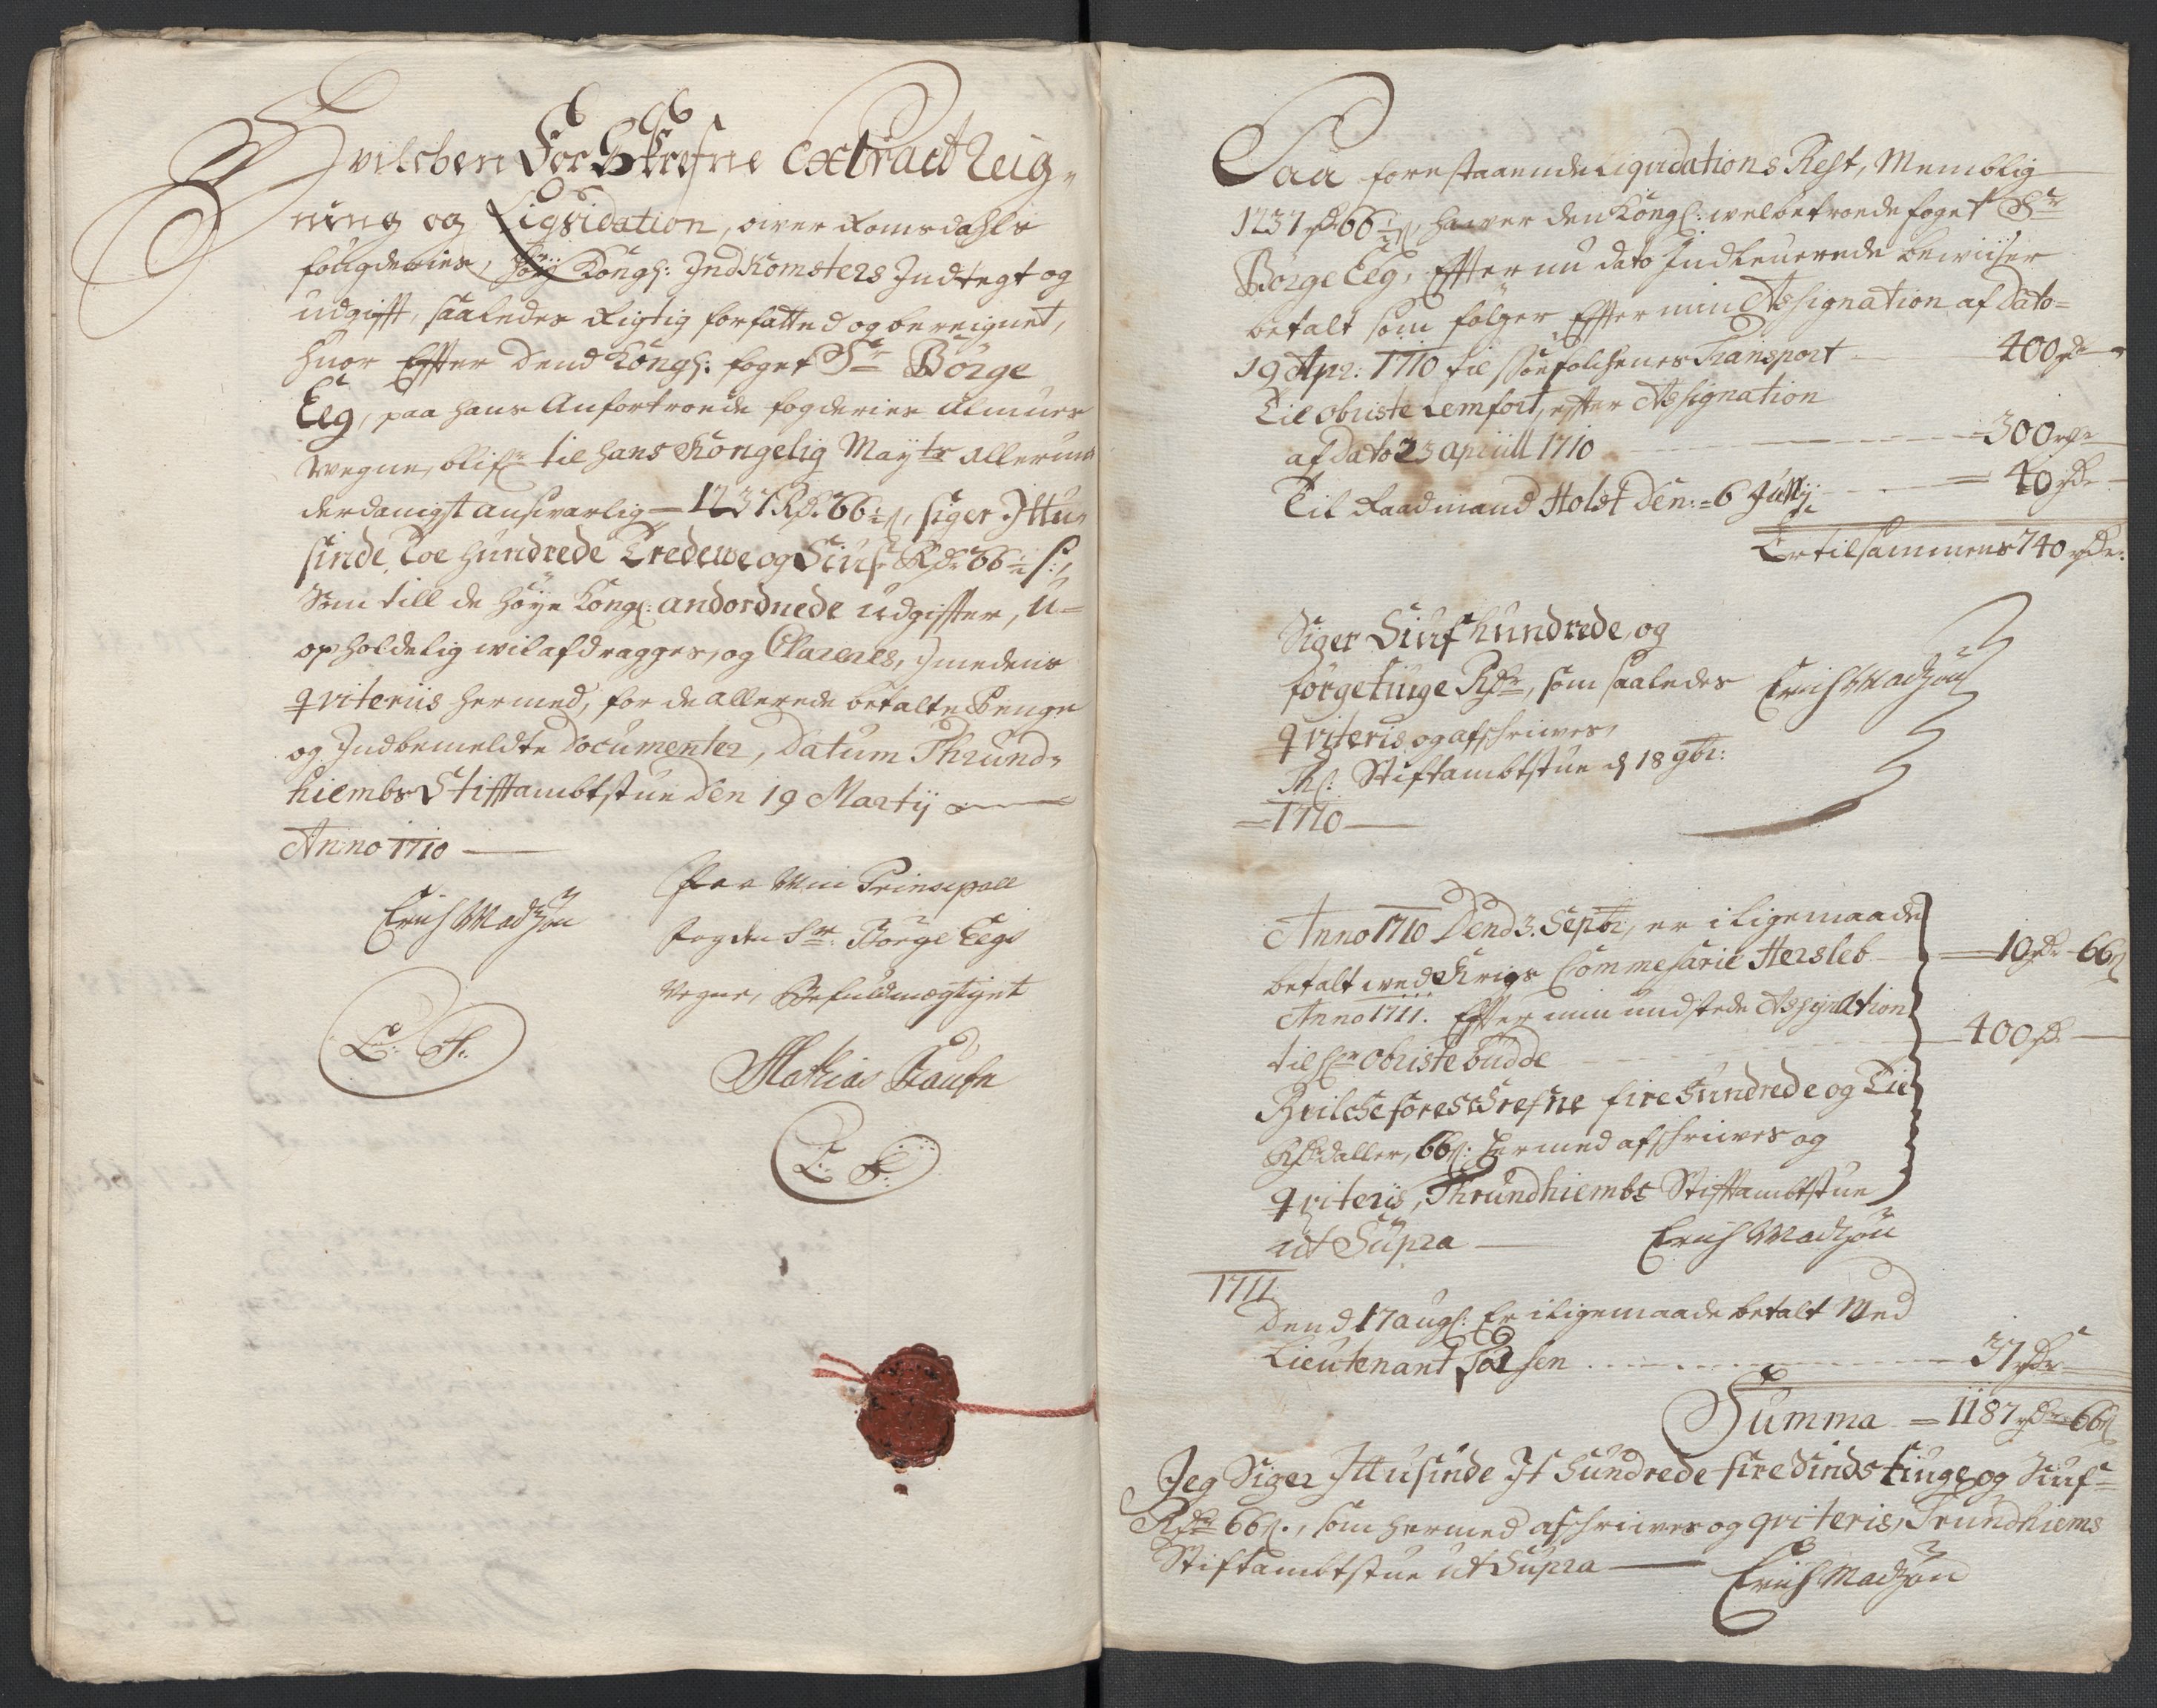 Hvilchen For Skrefne Extract Reig-
ning og Liqvidation, over Romsdahls
fougderies, Høy Kongl: Indkomsters Indtegt og
udgifft, saaledes Rigtig forfatted og bereignet,
huor Effter Dend Kongl: foget Sr Børge
Eeg, paa hans Anfortroede fogderies Almues
wegne, blifr til hans Kongelig Mayts allerun
derdanigst ansvarlig = 1237 Rd. 66½ s, siger Ittu-
sinde, Toe hundrede Tredeve og Siuf Rdr 66½ s:,
Som till de høye Kongl: andordnede udgiffter, U-
opholdelig wil afdragges, og Clareres, Imedens
qviteriis hermed, for de allerede betalte Penge
og Indbemeldte Documenter, Datum Thrund-
hiembs Stifftambtstue Den 19 Martij
Anno 1710
Erich Madzøn
Paa Min Prinsepall
fogden Sr. Børge Eegs
Vegne, Befuldmegtiget
L. S.
Mathias
L. S.
Saa forestaaende Liqvidations Rest, Nemblig
1237 rd 66½ s, hawer den Kongl: welbetroede foget Sr
Børge Eeg, Effter nu dato Indleuerede bewiiser
betalt som følger Effter min Assignation af Dato =
19 Apr: 1710 til Søefolchenes Transport 400 rd
Til Obriste Lemfort, effter Assignation
af Dato 23 apriill 1710 = 300 rdr
Til Raadmand Holst Den = 6 Julij = 40 rdr
Er tilsammens 740 rdr.
Siger Siuf hundrede, og
førgetiuge Rdr, som saaledes Erich Madzøn
qviteris og afschrives,
Th: Stiftambtstue d 18 9br:
= 1710
Anno 1710 Dend 3. Septbr, er i ligemaade
betalt wed Krigs Commesarie Hersleb = 10 rdr 66 s
Anno 1711. Effter min udstede Assignation
til Hr Obriste Budde 400 rd
Hvilche foreschrefne fire hundrede og Tie
Rixdaller, 66 s: hermed afschriwes og
qviteris, Thrundhiembs Stifftambtstue
ut Supra Erich Madzøn
1711
Dend 17 augs: Er i ligemaade betalt Med
Lieutenant 37 rdr
Summa = 1187 rdr 66 s
Jeg Siger Ittusinde It hundrede firesindstiuge og Siuf
Rdr 66 s., som hermed afschriwes og qviteris, Trundhiems
Stiftambtstue ut Supra Erich Madzøn